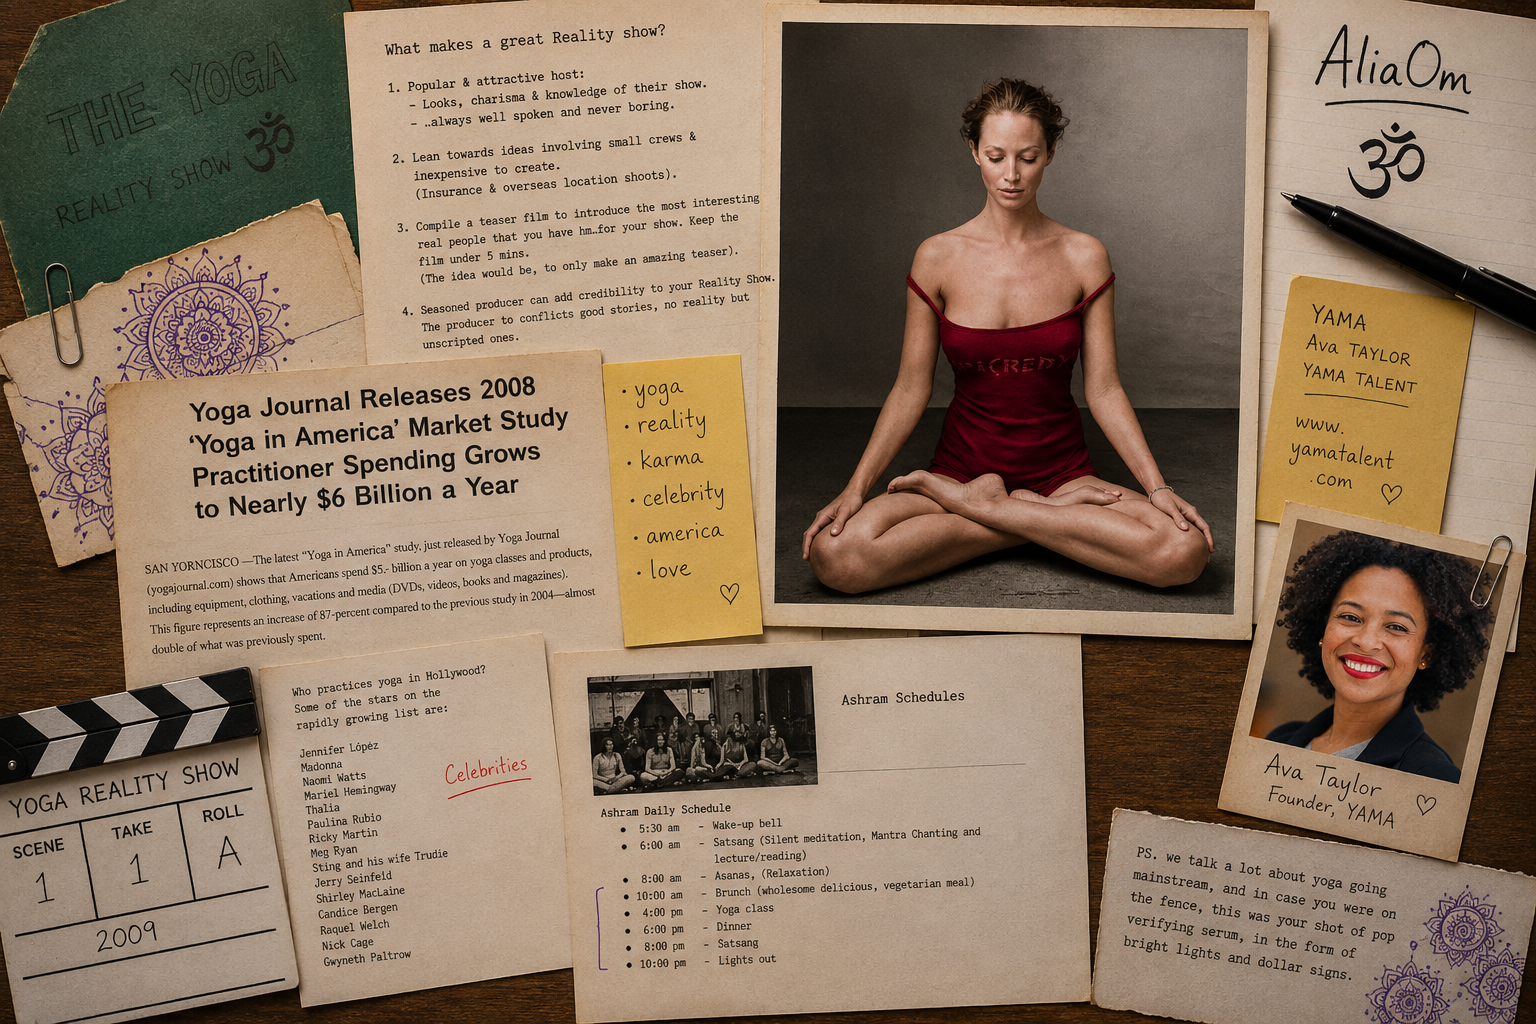 THE YOGA
REALITY SHOW ॐ
What makes a great Reality show?
1. Popular & attractive host:
– Looks, charisma & knowledge of their show.
– ..always well spoken and never boring.
2. Lean towards ideas involving small crews &
inexpensive to create.
(Insurance & overseas location shoots).
3. Compile a teaser film to introduce the most interesting
real people that you have hm…for your show. Keep the
film under 5 mins.
(The idea would be, to only make an amazing teaser).
4. Seasoned producer can add credibility to your Reality Show.
The producer to conflicts good stories, no reality but
unscripted ones.
AliaOm
ॐ
YAMA
Ava TAYLOR
YAMA TALENT
www.
yamatalent
.com
Yoga Journal Releases 2008
‘Yoga in America’ Market Study
Practitioner Spending Grows
to Nearly $6 Billion a Year
SAN YORNCISCO —The latest “Yoga in America” study, just released by Yoga Journal
(yogajournal.com) shows that Americans spend $5.- billion a year on yoga classes and products,
including equipment, clothing, vacations and media (DVDs, videos, books and magazines).
This figure represents an increase of 87-percent compared to the previous study in 2004—almost
double of what was previously spent.
· yoga
· reality
· karma
· celebrity
· america
· love
YOGA REALITY SHOW
SCENE
1
TAKE
1
ROLL
A
2009
Who practices yoga in Hollywood?
Some of the stars on the
rapidly growing list are:
Jennifer Lópéz
Madonna
Naomi Watts
Mariel Hemingway
Thalia
Paulina Rubio
Ricky Martin
Meg Ryan
Sting and his wife Trudie
Jerry Seinfeld
Shirley MacLaine
Candice Bergen
Raquel Welch
Nick Cage
Gwyneth Paltrow
Celebrities
Ashram Schedules
Ashram Daily Schedule
• 5:30 am – Wake-up bell
• 6:00 am – Satsang (Silent meditation, Mantra Chanting and
lecture/reading)
• 8:00 am – Asanas, (Relaxation)
• 10:00 am – Brunch (wholesome delicious, vegetarian meal)
• 4:00 pm – Yoga class
• 6:00 pm – Dinner
• 8:00 pm – Satsang
• 10:00 pm – Lights out
Ava Taylor
Founder, YAMA
PS. we talk a lot about yoga going
mainstream, and in case you were on
the fence, this was your shot of pop
verifying serum, in the form of
bright lights and dollar signs.